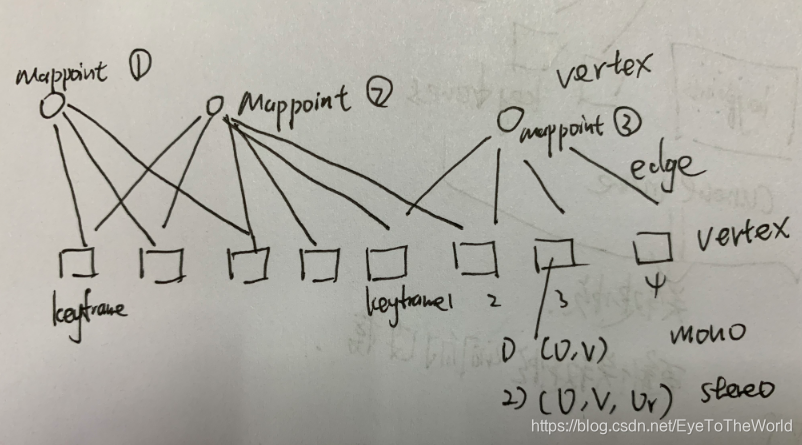 mappoint ①
Mappoint ②
vertex
mappoint ③
edge
vertex
keyframe
keyframe1 2 3 4
1) (U,V) mono
2) (U,V, Ur) stereo
https://blog.csdn.net/EyeToTheWorld